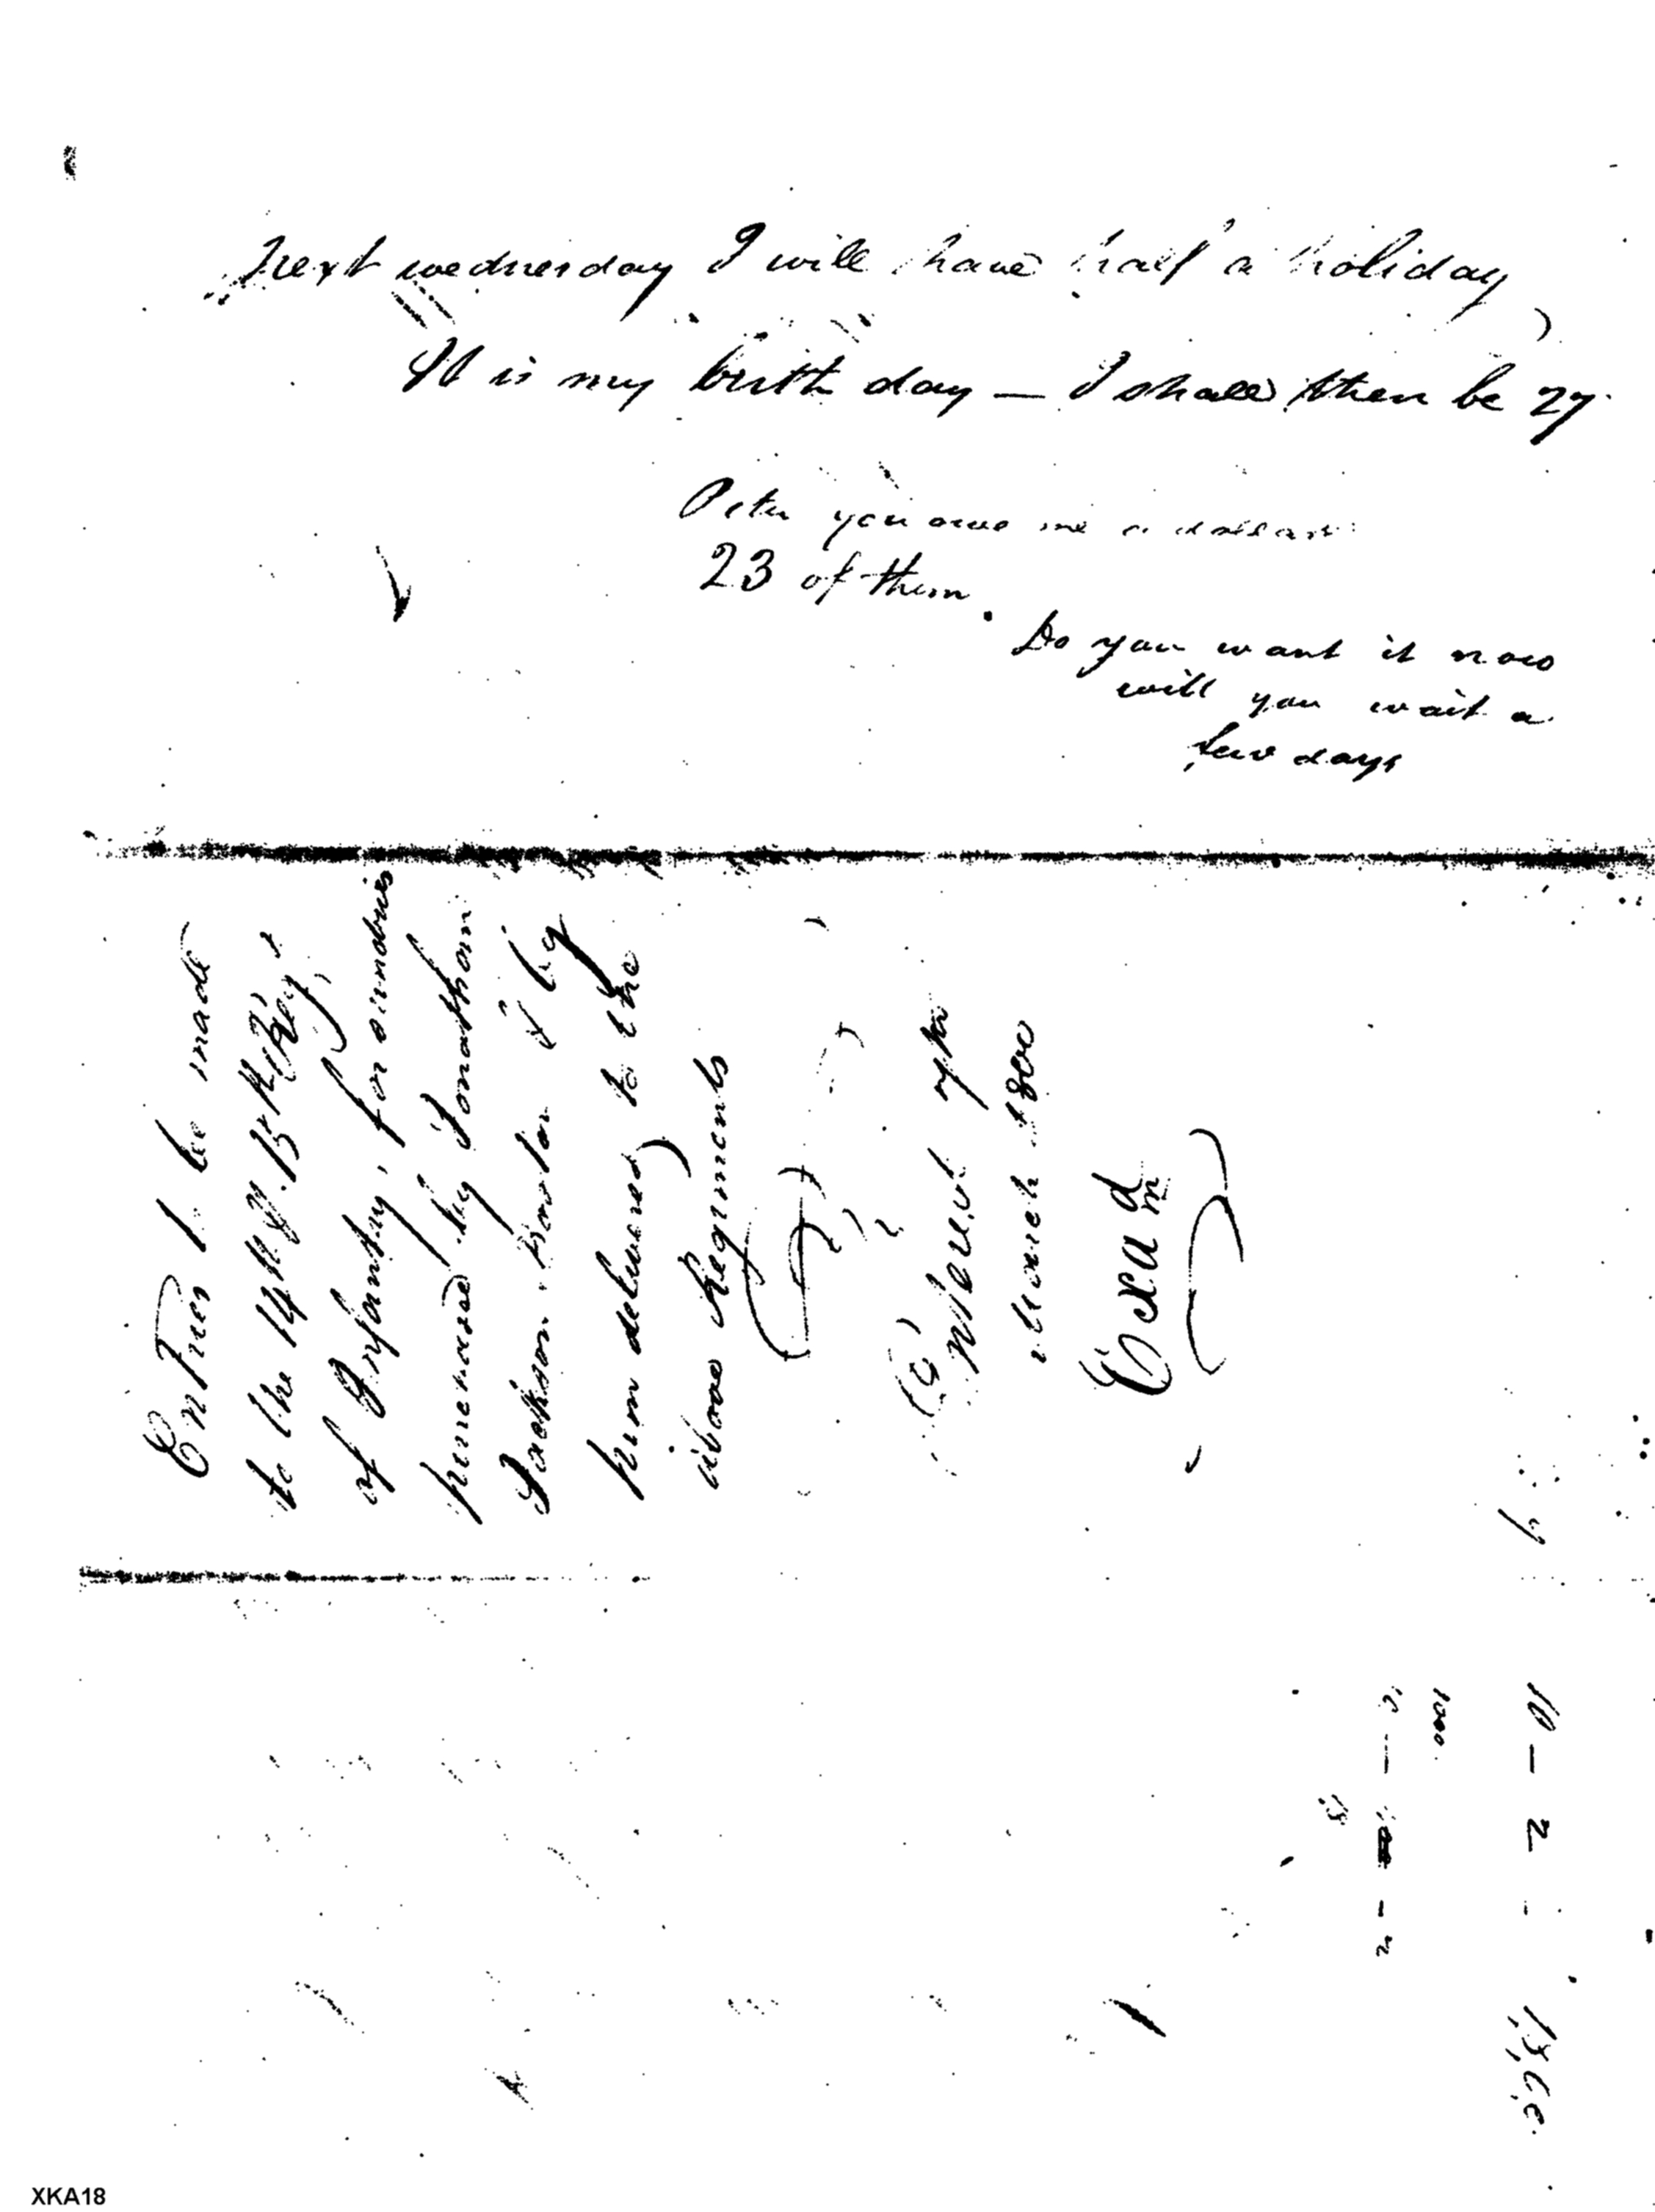 next wednesday I will have half a holiday
It is my birth day — I shall then be 27
Peter you owe me a dollar
23 of them.
Do you want it now
will you wait a
few days
Entries to be made
to the 14th & 15th Reg.t
of Infantry, for sundries
purchased by Jonathan
Jackson & by
him delivered to the
above Regiments
Enter'd 7th
March 1800
Exa.d
XKA18